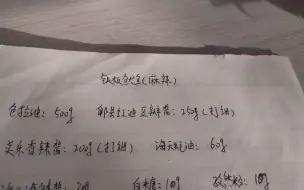 铁板鱿鱼(麻辣)
色拉油: 500g 郫县红油豆瓣酱: 250g (打细)
美乐香辣酱: 200g (打细) 海天蚝油: 60g
白米糖: 10g 孜然粒: 10g